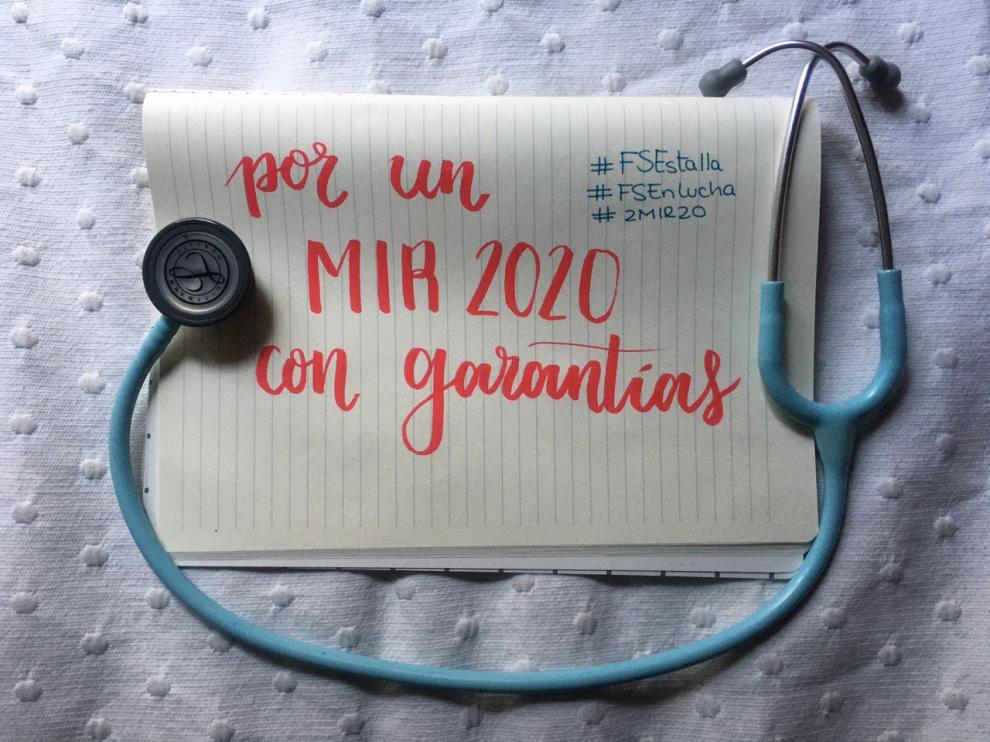 por un
MIR 2020
con garantías
# FSEstalla
# FSEnlucha
# 2MIR20